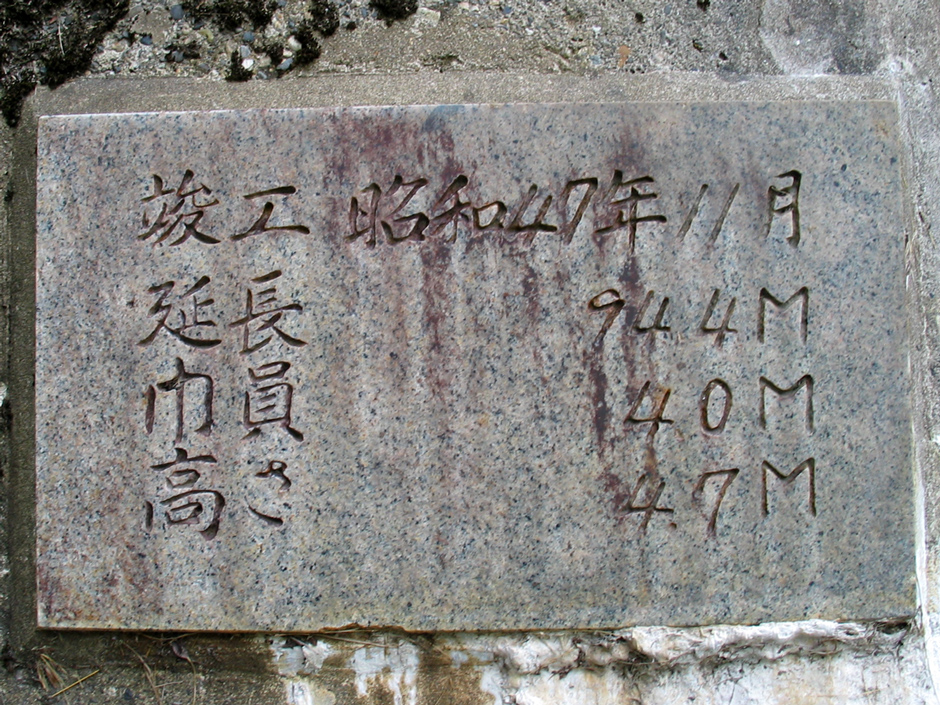 竣工 昭和47年11月
延長 94.4M
巾員 4.0M
高さ 4.7M